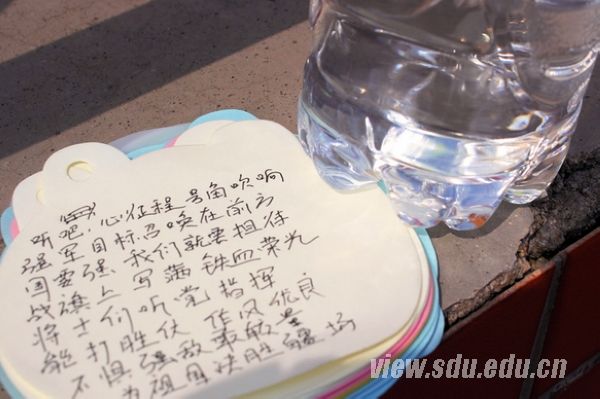 听吧,心征程号角吹响
强军目标召唤在前方
国要强 我们就要担待
战旗上写满铁血荣光
将士们听党指挥
能打胜仗 作风优良
不惧强敌
为祖国决胜疆场
view.sdu.edu.cn